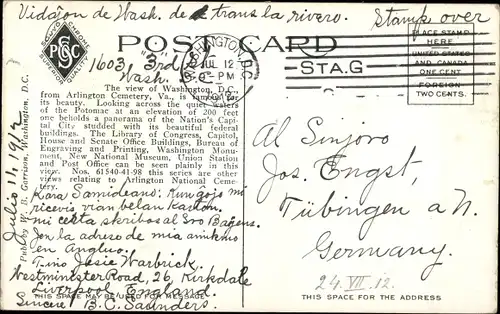 Vidaĵon de Wash. de trans la rivero. Stamp over
POST CARD
C.P.C. CO.
PLACE STAMP
HERE
UNITED STATES
AND CANADA
ONE CENT
FOREIGN
TWO CENTS.
STA.G
1603, 3rd St
Wash.
WASHINGTON, D.C.
JUL 12
8-PM
The view of Washington, D.C.,
from Arlington Cemetery, Va., is famous for
its beauty. Looking across the quiet waters
of the Potomac at an elevation of 200 feet
one beholds a panorama of the Nation's Capi-
tal City studded with its beautiful federal
buildings. The Library of Congress, Capitol,
House and Senate Office Buildings, Bureau of
Engraving and Printing, Washington Monu-
ment, New National Museum, Union Station
and Post Office can be seen plainly in this
view. Nos. 61540-41-98 this series are other
views relating to Arlington National Ceme-
tery.
Pub. by W. B. Garrison, Washington, D.C.
Julio 11, 1912
Kara Samideano: Kun ĝojo mi
ricevis vian belan karton,
mi certa skribos al Sro
Jen la adreso de mia amikino
en Anglio.
F-ino Josie Warbrick.
Westminister Road, 26 Kirkdale
Liverpool England.
Sincere B.C. Saunders.
THIS SPACE MAY BE USED FOR MESSAGE
Al Sinjoro
Jos. Engst,
Tübingen a N.
Germany.
24. VII. 12.
THIS SPACE FOR THE ADDRESS